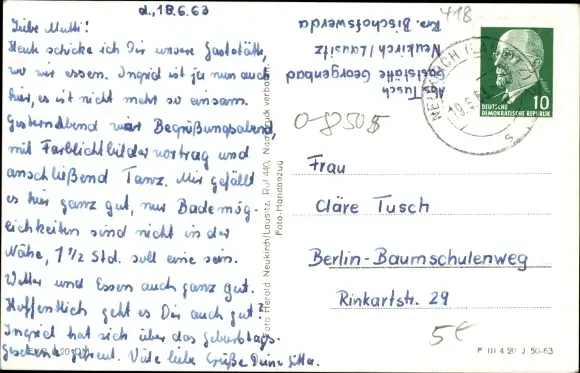 d., 18.6.63
Liebe Mutti!
Heute schicke ich Dir unsere Gaststätte,
wo wir essen. Ingrid ist ja nun auch
hier, es ist nicht mehr so einsam.
Gesternabend war Begrüßungsabend,
mit Farblichtbildervortrag und
anschließend Tanz. Mir gefällt
es hier ganz gut, nur Bademög-
lichkeiten sind nicht in der
Nähe, 1 1/2 Std. soll eine sein.
Wetter und Essen auch ganz gut.
Hoffentlich geht es Dir auch gut?
Ingrid hat sich über das Geburtstags-
geschenk gefreut. Viele liebe Grüße Deine
Foto Herold Neukirch/Lausitz, Ruf 440, Nachdruck verboten
Foto-Handabzug
Abs. Tusch
Gaststätte Georgenbad
Neukirch/Lausitz
Krs. Bischofswerda
418
NEUKIRCH (LAUSITZ)
10
DEUTSCHE
DEMOKRATISCHE REPUBLIK
0-8505
Frau
Cläre Tusch
Berlin-Baumschulenweg
Rinkartstr. 29
5€
P III 4 20 J 50-63